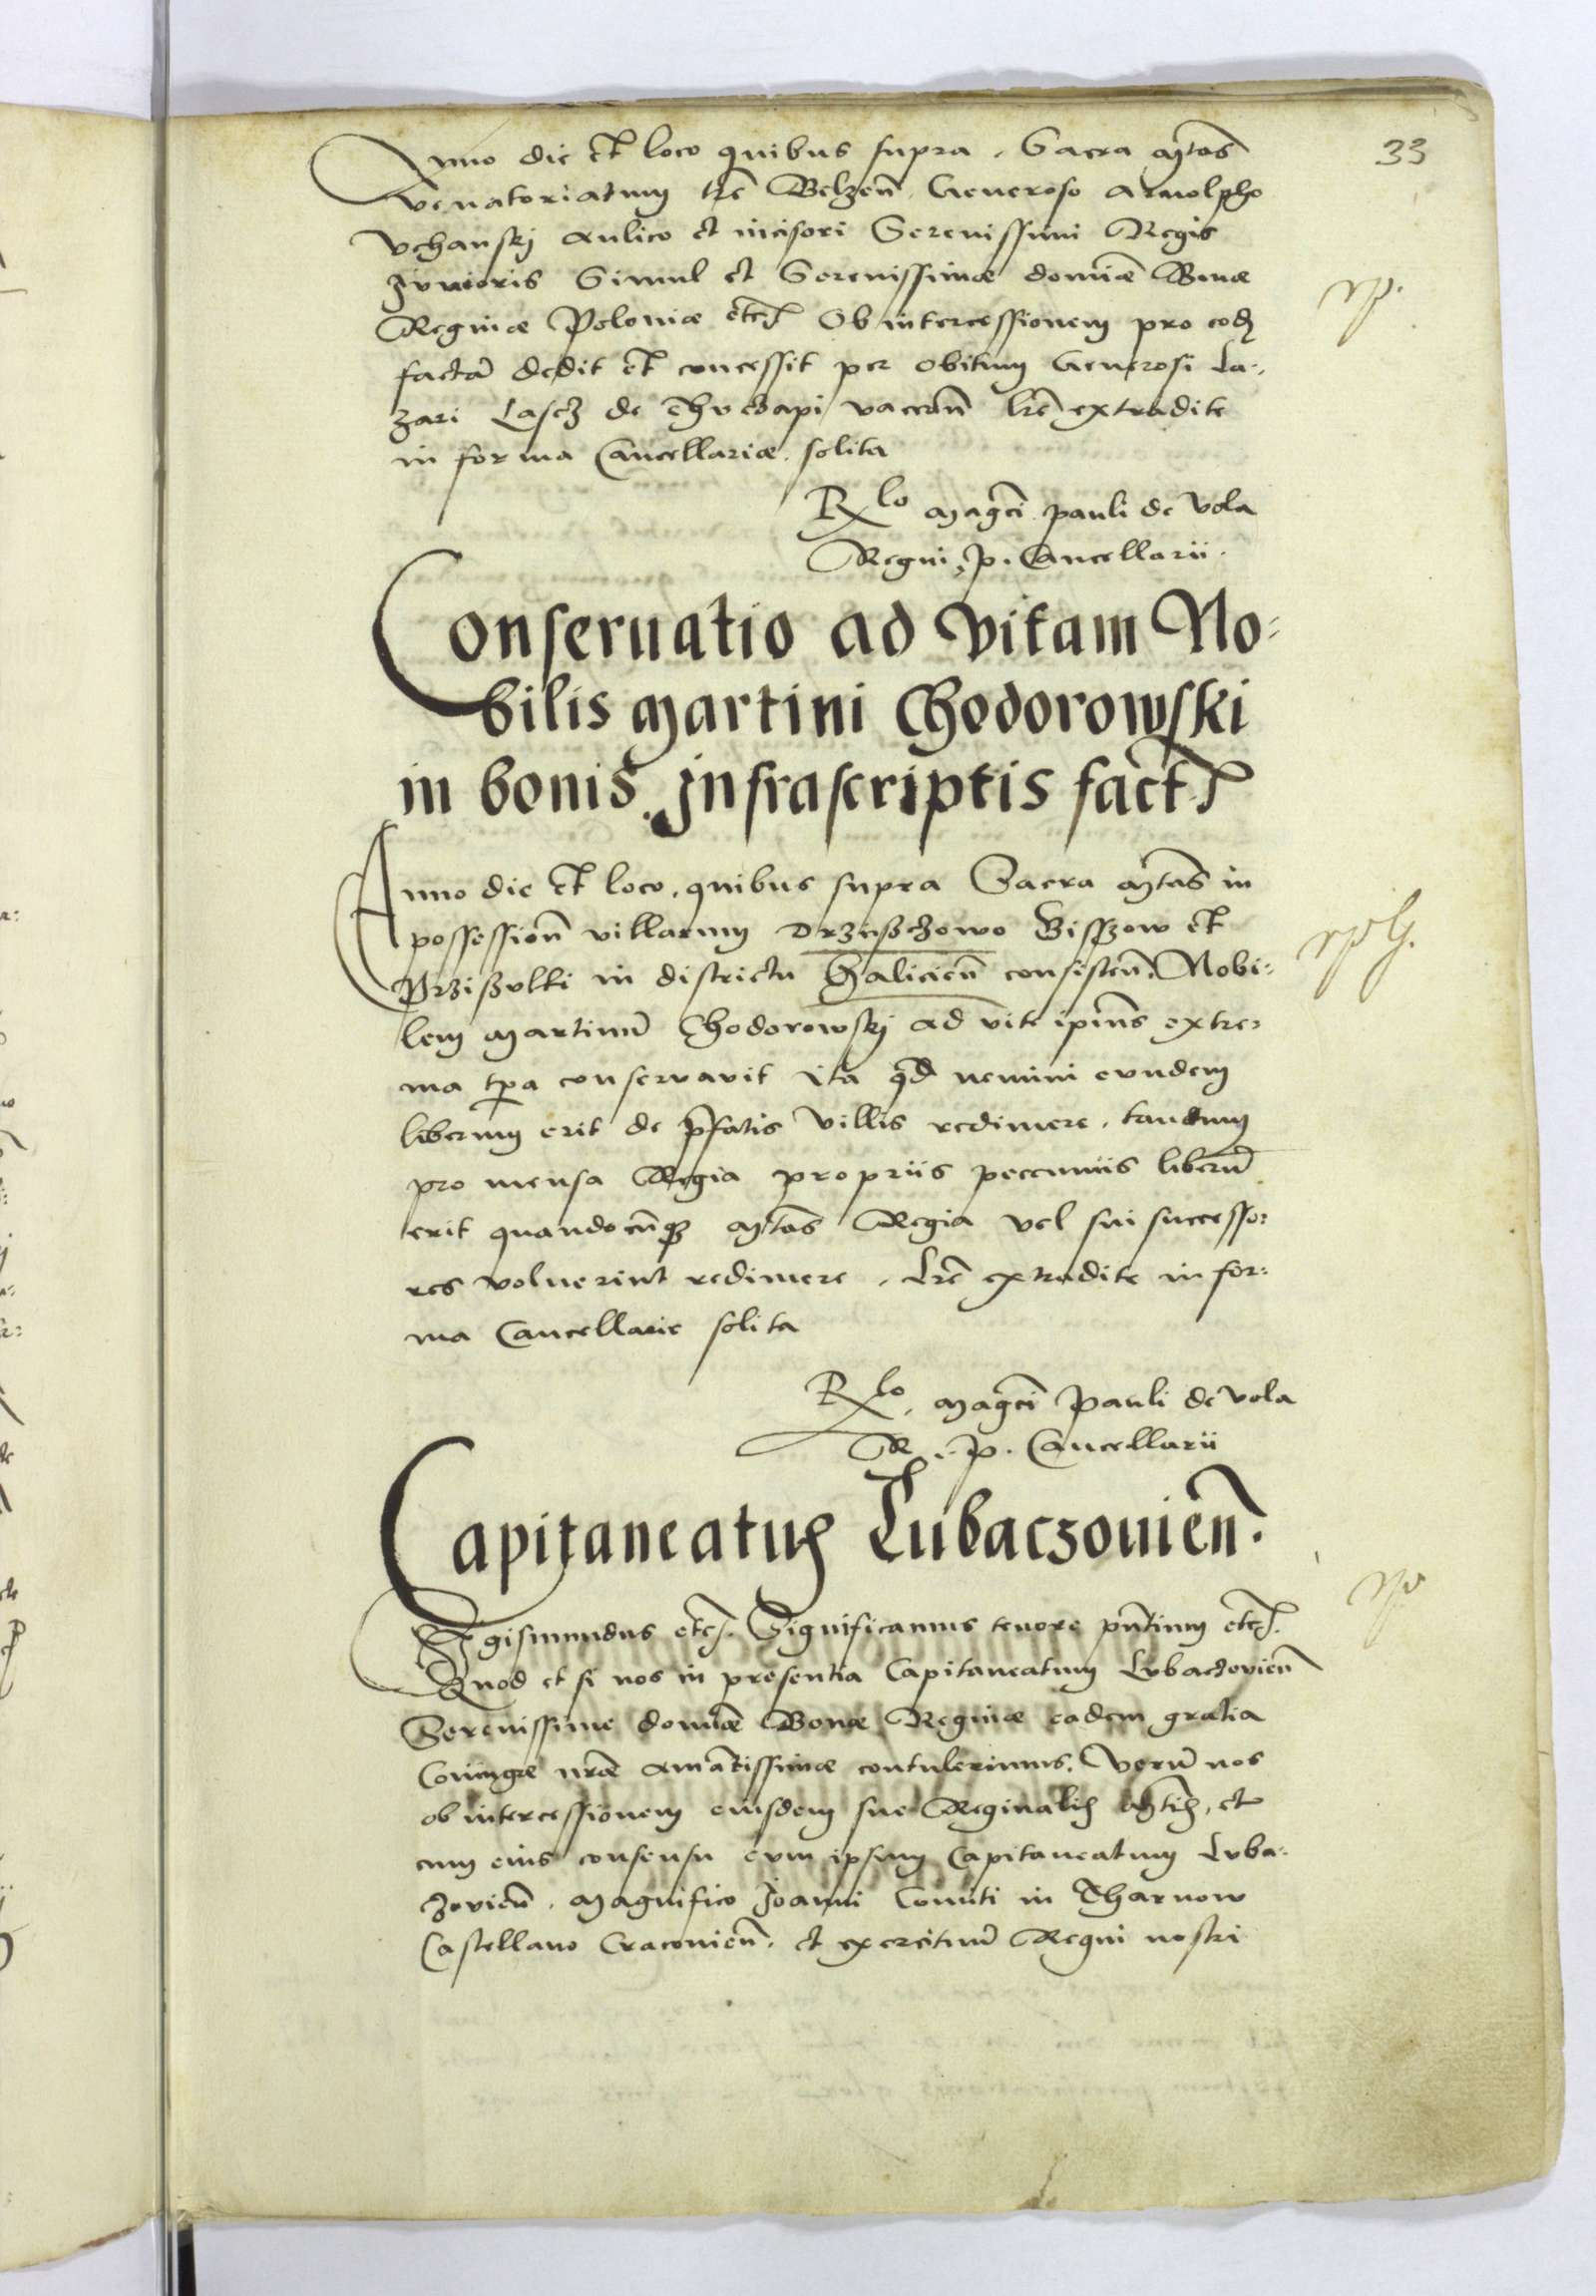 33
Anno die et loco quibus supra. Sacra Mtas
venatoriatum tre Belzen. Generoso Arnolpho
Vchanskj Aulico et incisori Serenissimi Regis
Junioris Simul et Serenissimæ dominæ Bonæ
Reginæ Poloniæ etc. Ob intercessionem pro eod
factã dedit et concessit per obitum Generosi La-
zari Lascz de vacan. lre extradite
in forma Cancellariæ solita
Rlo Magci Pauli de Vola
Regni P. Cancellarii.
Conseruatio ad vitam No-
bilis Martini Chodorowski
in bonis Infrascriptis fact.
Anno die et loco quibus supra Sacra Mtas in
possession villarum Drzusczowo Biszow et
Przisulki in districtu Halicien consisten. Nobi-
lem Martinũ Chodorowskj ad vite ipius extre-
ma tpa conservavit ita qd nemini eundem
liberum erit de pfatis villis redimere. tandum
pro mensa Regia propriis pecuniis liberũ
erit quandocũq Mtas Regia vel sui successo-
res voluerint redimere. Lre extradite in for-
ma Cancellarie solita
Rlo. Magci Pauli de Vola
R. P. Cancellarii
Capitaneatus Lubaczouien.
Sigismundus etc. Significamus tenore pntium etc.
Quod et si nos in presentia Capitaneatum Lubaczovien
Serenissime dominæ Bonæ Reginæ eadem gratia
Coniugæ nræ amãtissimæ contulerimus. Verũ nos
ob intercessionem eiusdem sue Reginalis Mtis, et
cum eius consensu eum ipsum Capitaneatum Luba-
zovien. Magnifico Joanni Comiti in Tharnow
Castellano Cracovien. et exercituũ Regni nostri